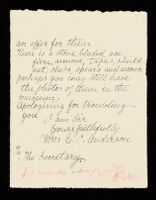 an offer for them
There is a stone bladed axe
fibre, armour, Tapa, shield
out, clubs, spears and arrows.
perhaps you may still have
the photos of them in the
museum.
Apologising for troubling
you
I am Sir
Yours faithfully
E. C. Anderson
To The Secretary